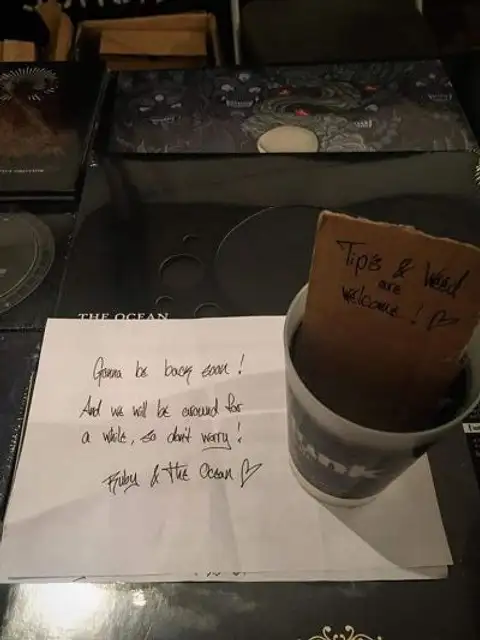 Tips & Weed
are
welcome! ♡
THE OCEAN
Gonna be back soon!
And we will be around for
a while, so don't worry!
Ruby & The Ocean ♡